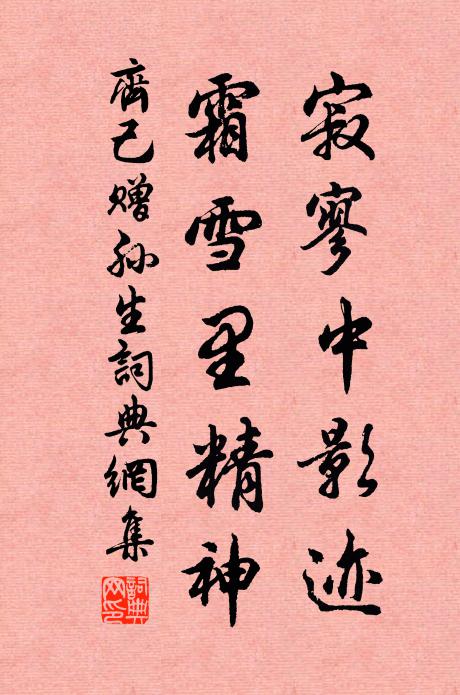 寂寥中影迹
霜雪里精神
齊己贈孙生詞典網集
詞典网印